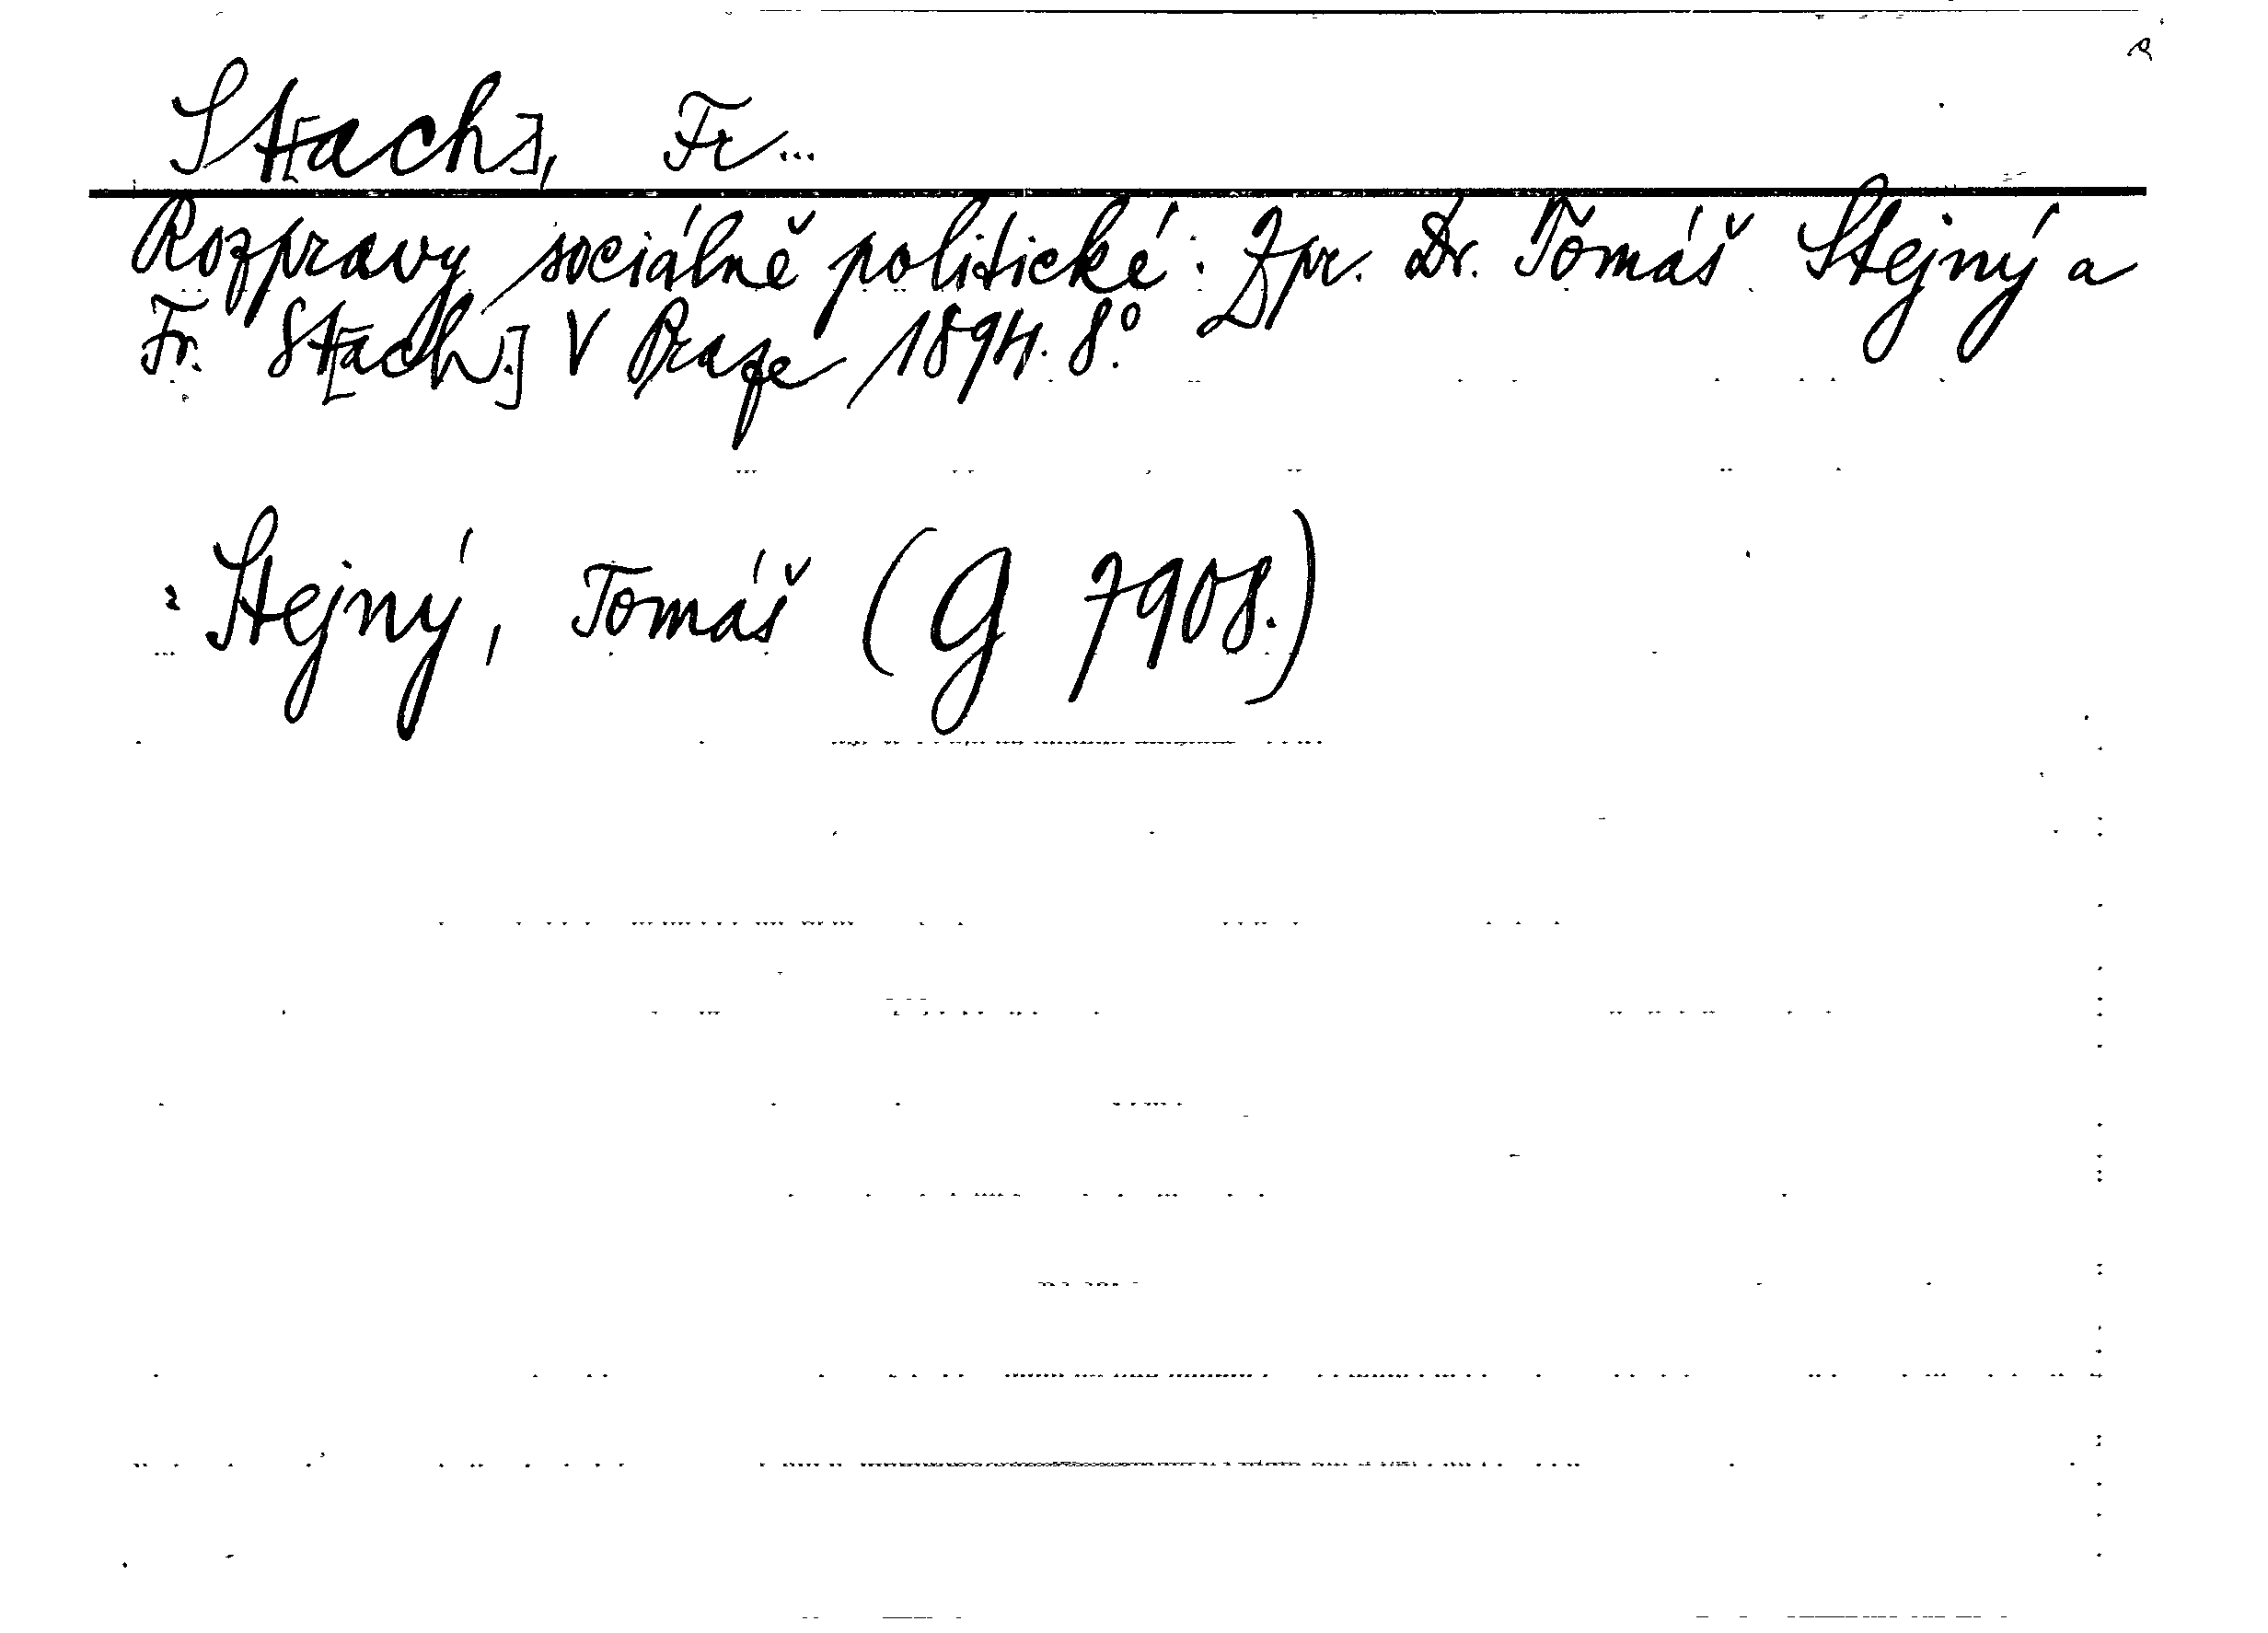 St[ach], Fr...
Rozpravy sociálně politické. Zpr. Dr. Tomáš Stejný a
Fr. St[ach.] V Praze 1894. 8°.
: Stejný, Tomáš (G 7908.)